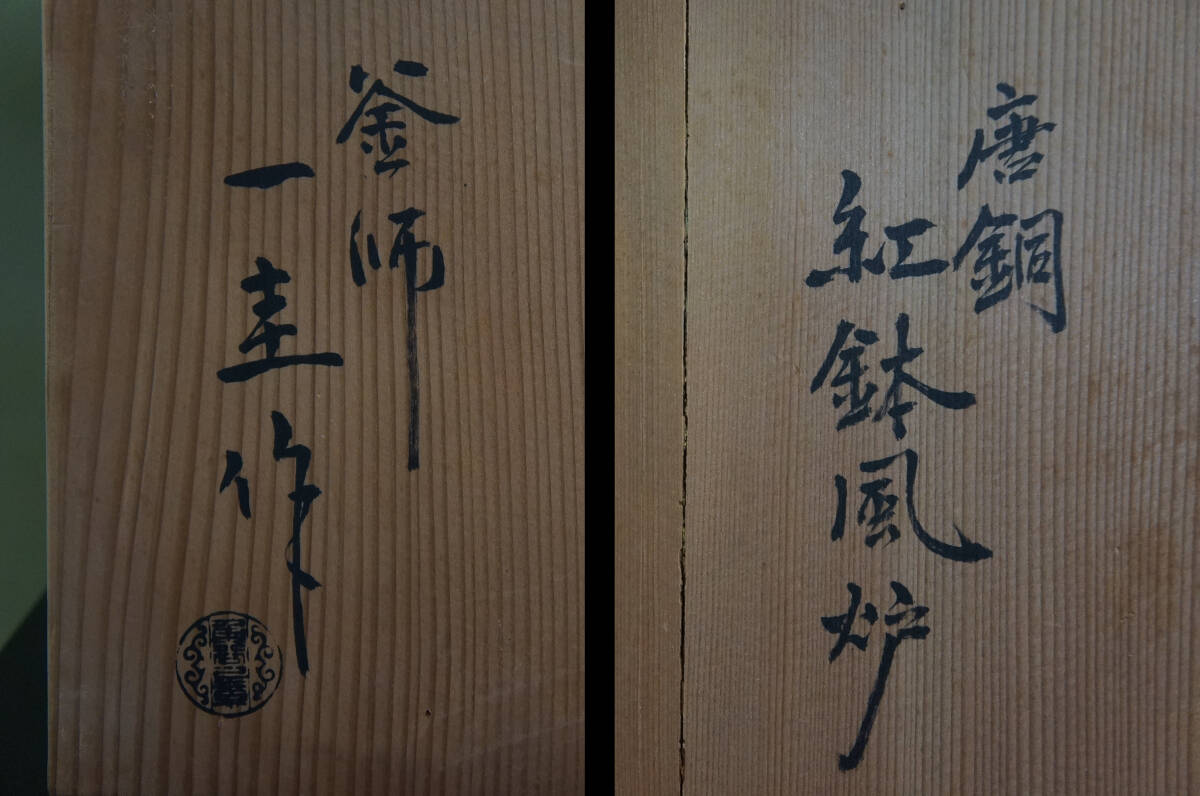 唐銅
紅鉢風炉
釜師
一圭作